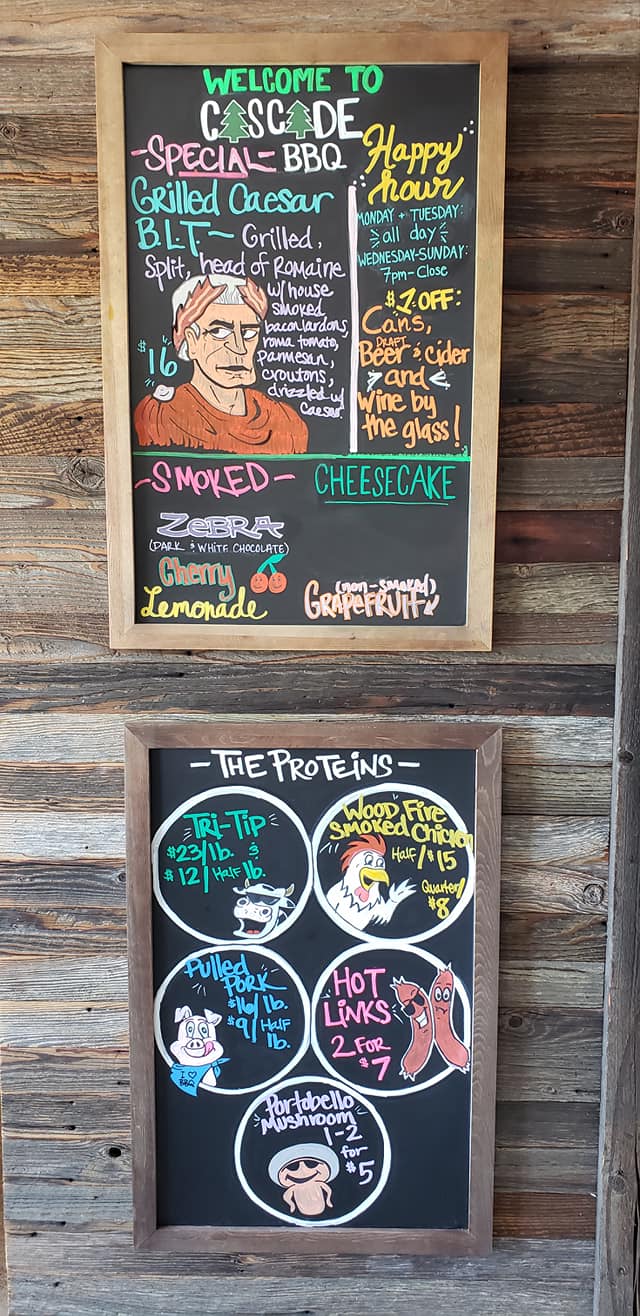 WELCOME TO
CASCADE
BBQ
-SPECIAL-
Grilled Caesar
B.L.T.- Grilled,
Split, head of Romaine
w/ house
smoked
bacon lardons,
roma tomato,
Parmesan,
croutons,
drizzled w/
Caesar.
$16
Happy
hour
MONDAY + TUESDAY:
all day
WEDNESDAY-SUNDAY:
7pm-Close
$1 OFF:
Cans,
DRAFT
Beer & cider
and
wine by
the glass!
-SMOKED- CHEESECAKE
ZEBRA
(DARK & WHITE CHOCOLATE)
Cherry
Lemonade
(non-smoked)
GRAPEFRUIT
-THE PROTEINS-
TRI-TIP
$23/lb. &
$12/Half lb.
Wood Fire
Smoked Chicken
Half/$15
Quarter/
$8
Pulled
Pork
$16/lb.
$9/Half
lb.
I ♡
BBQ
HOT
LINKS
2 FOR
$7
Portobello
Mushroom
1-2
for
$5